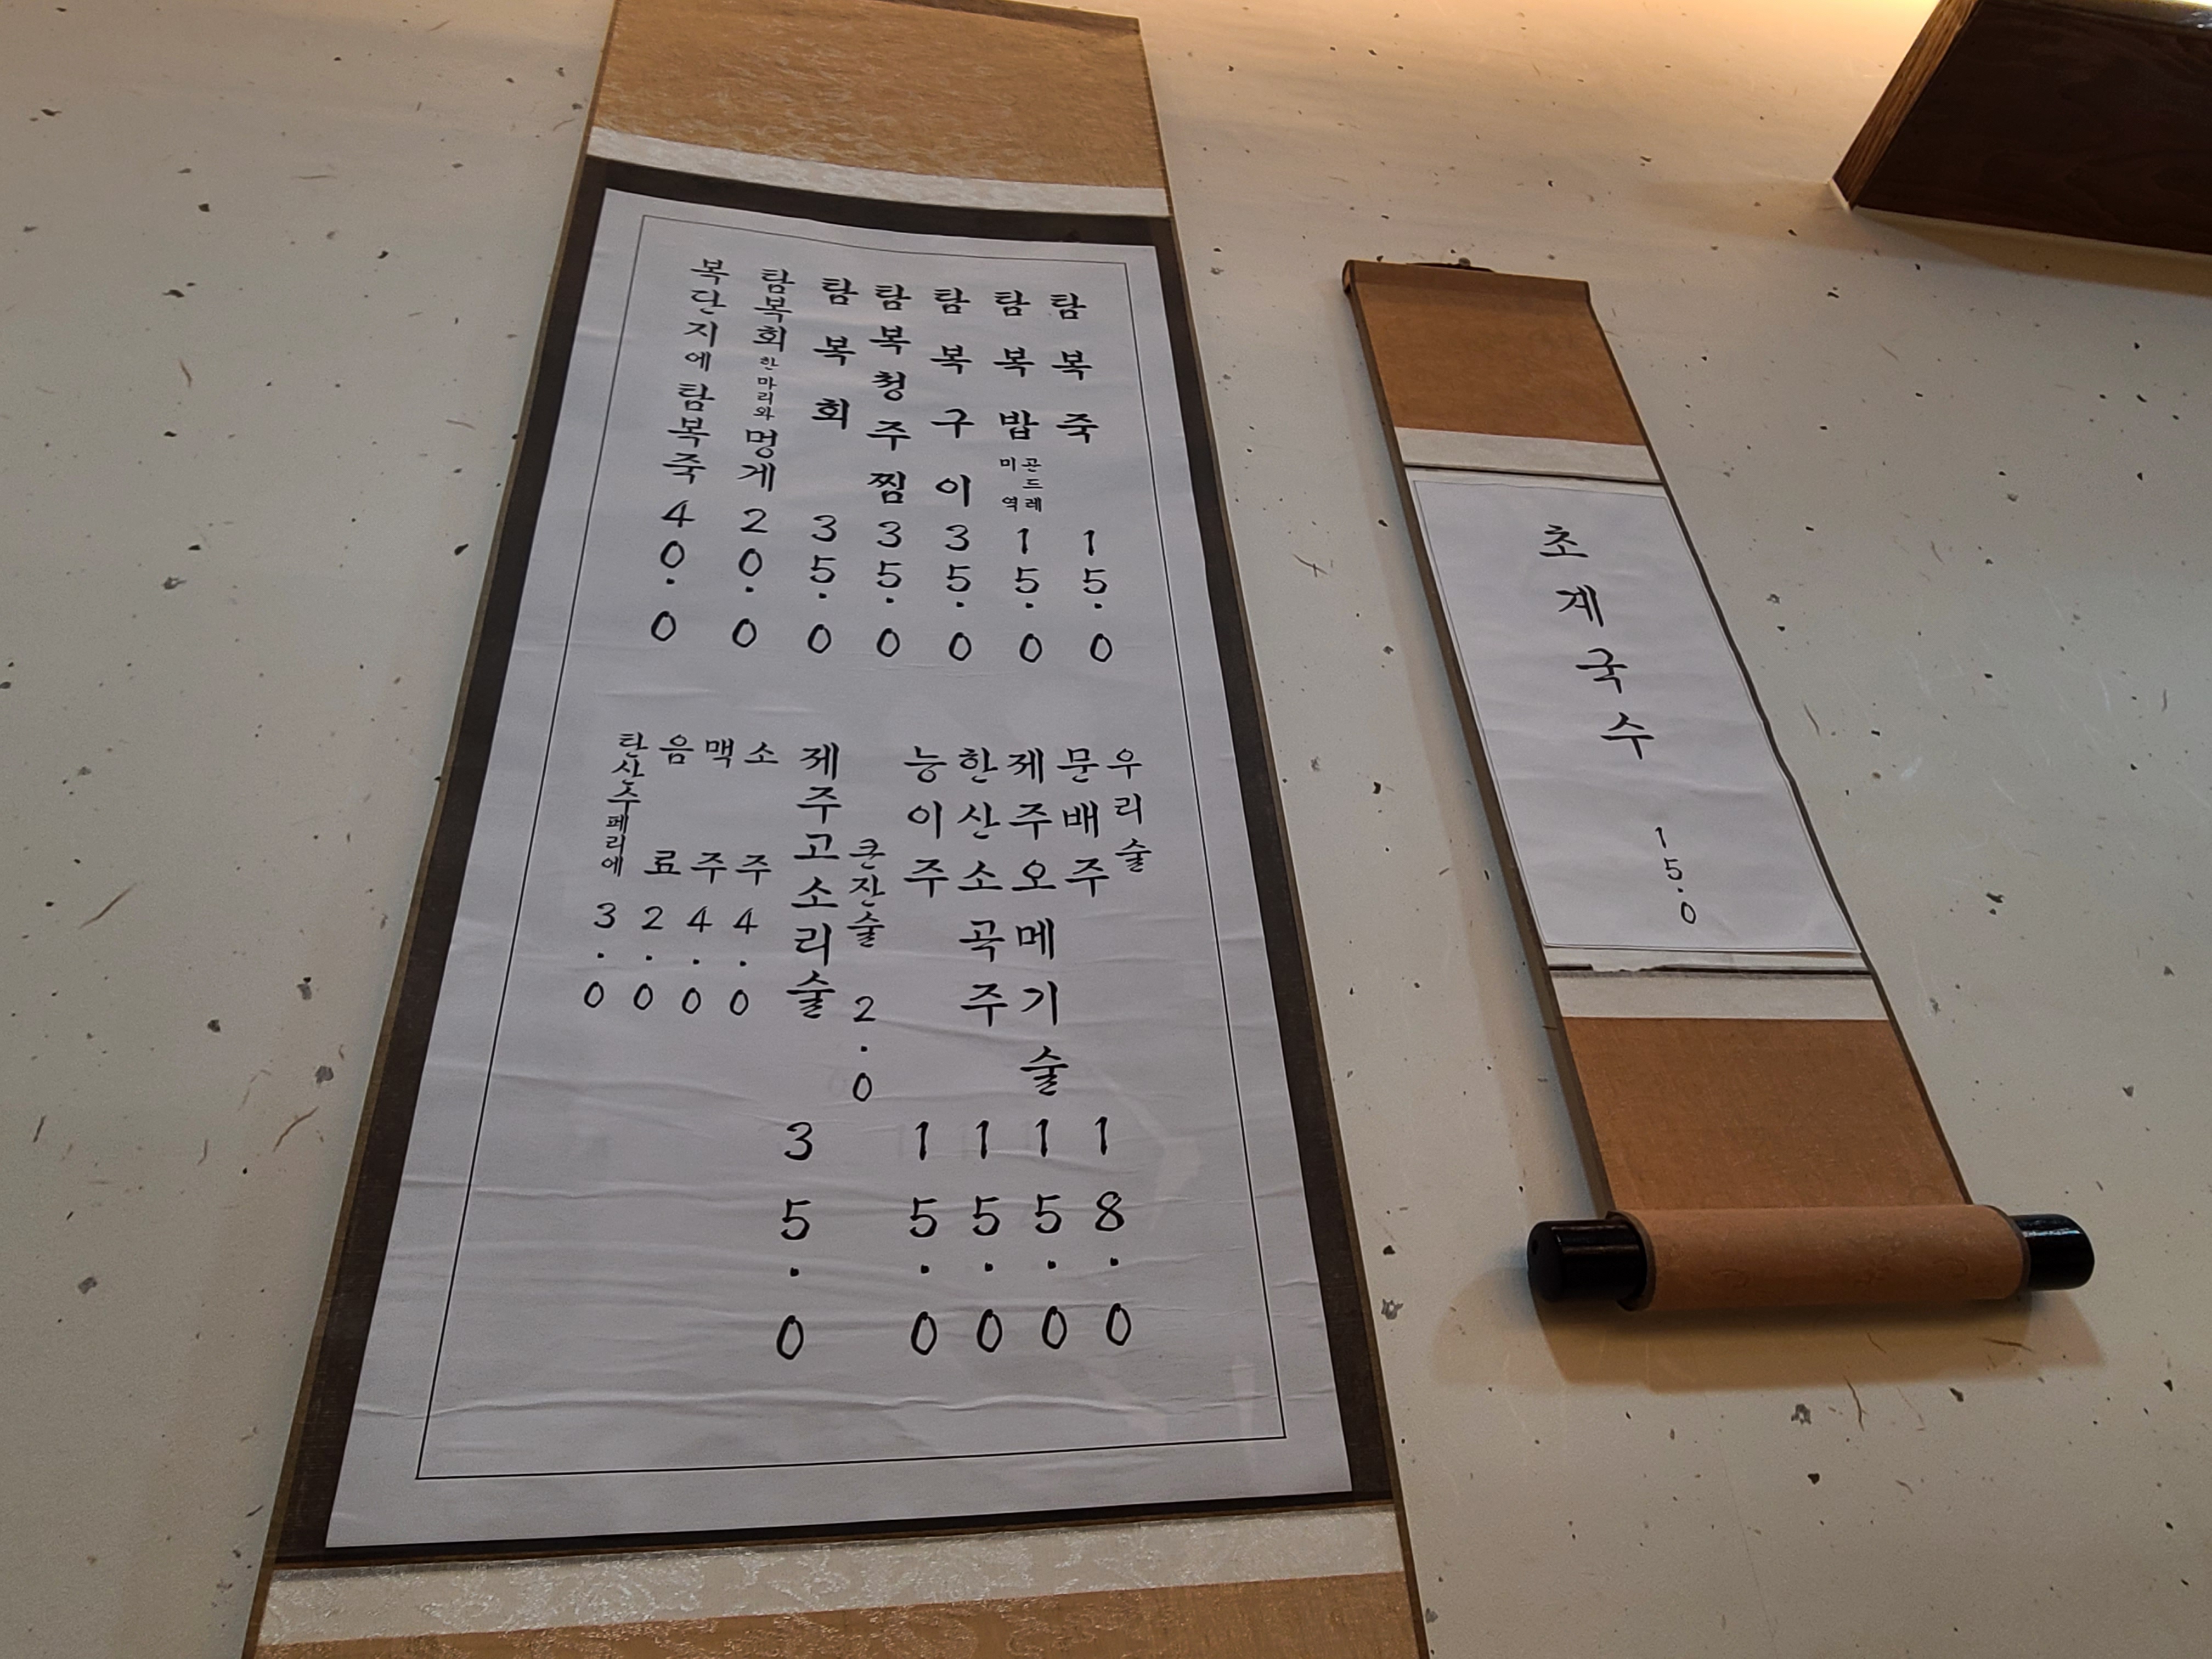 탐복죽 15.0
탐복밥 곤드레 미역 15.0
탐복구이 35.0
탐복청주찜 35.0
탐복회 35.0
탐복회 한마리와 멍게 20.0
복단지에 탐복죽 40.0
우리술
문배주 18.0
제주오메기술 15.0
한산소곡주 15.0
능이주 15.0
큰잔술 2.0
제주고소리술 35.0
소주 4.0
맥주 4.0
음료 2.0
탄산수페리에 3.0
초계국수 15.0